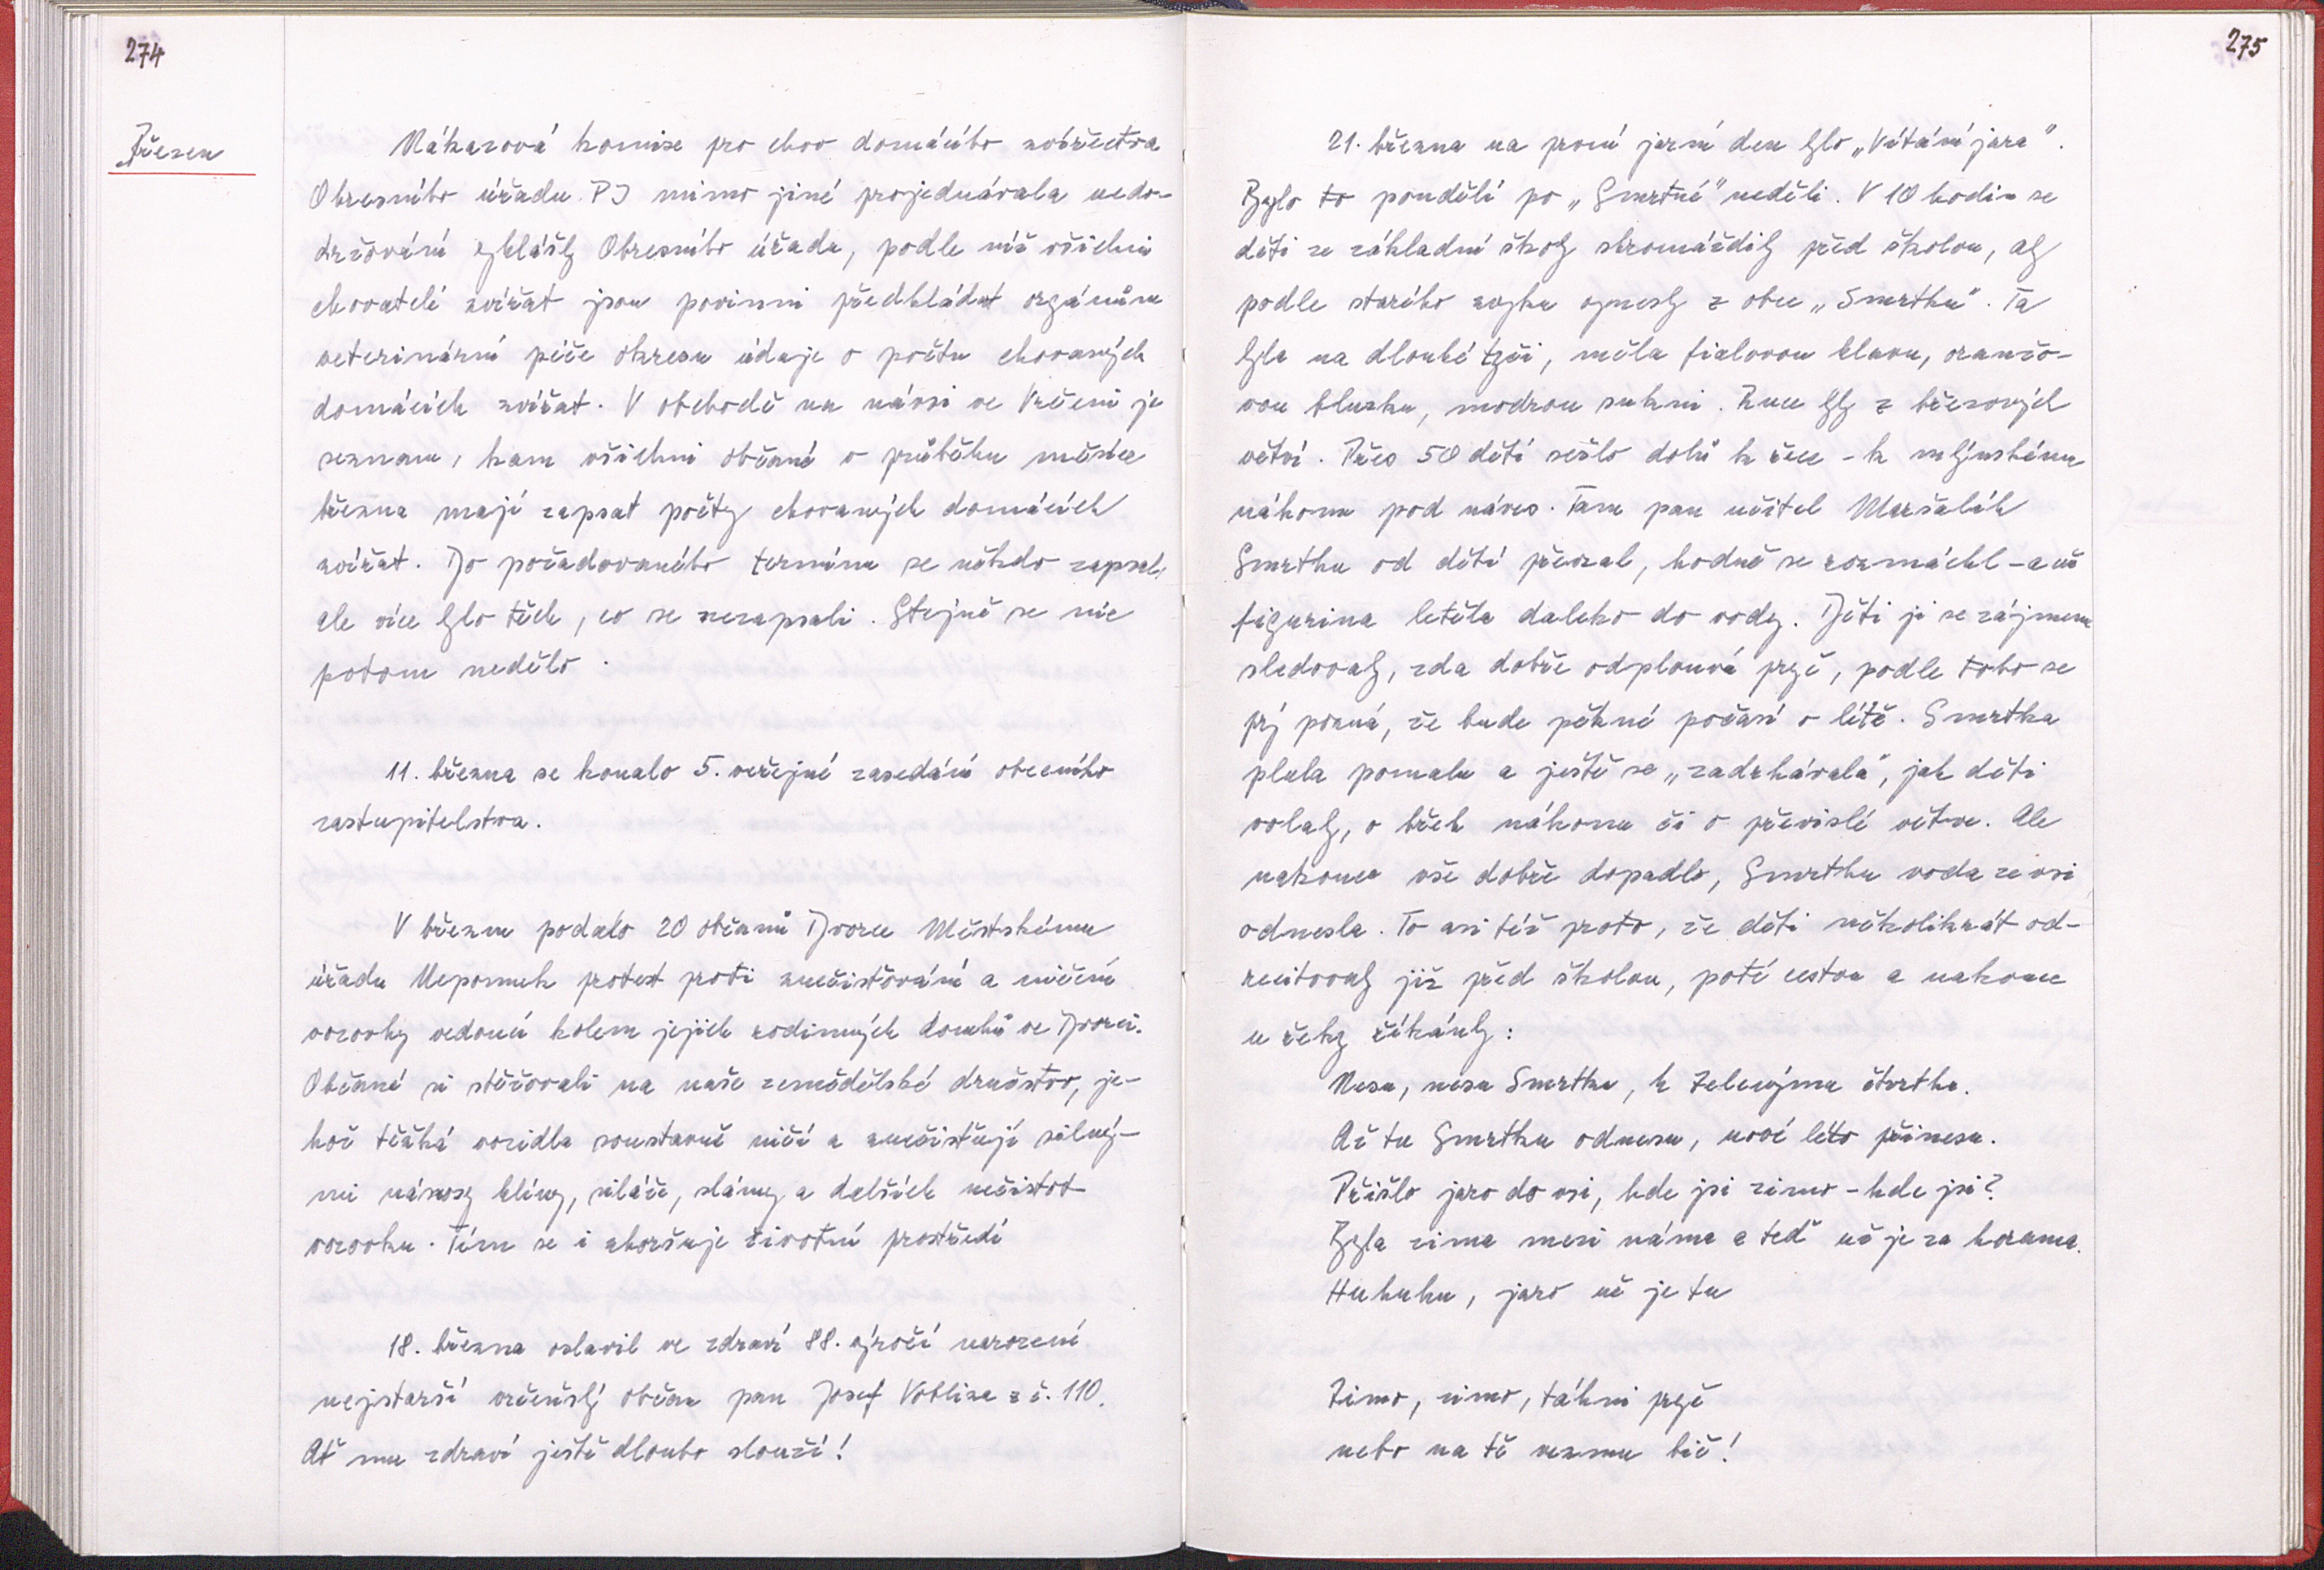 274
Březen
Nákazová komise pro chov domácího zvířectva
Okresního úřadu PJ mimo jiné projednávala nedo-
držování vyhlášky Okresního úřadu, podle níž všichni
chovatelé zvířat jsou povinni předkládat orgánům
veterinární péče okresu údaje o počtu chovaných
domácích zvířat. V obchodě na návsi ve Vrčeni je
seznam, kam všichni občané v průběhu měsíce
března mají zapsat počty chovaných domácích
zvířat. Do požadovaného termínu se někdo zapsal,
ale více bylo těch, co se nezapsali. Stejně se nic
potom nedělo.
11. března se konalo 5. veřejné zasedání obecního
zastupitelstva.
V březnu podalo 20 občanů Dvorce Městskému
úřadu Nepomuk protest proti znečisťování a ničení
vozovky vedoucí kolem jejich rodinných domků ve Dvorci.
Občané si stěžovali na naše zemědělské družstvo, je-
hož těžká vozidla soustavně ničí a znečisťují silný-
mi nánosy hlíny, siláže, slámy a dalších nečistot
vozovku. Tím se i zhoršuje životní prostředí
18. března oslavil ve zdraví 88. výročí narození
nejstarší vrčeňský občan pan Josef Votlina z č. 110.
Ať mu zdraví ještě dlouho slouží!
275
21. března na první jarní den bylo „Vítání jara".
Bylo to pondělí po „Smrtné" neděli. V 10 hodin se
děti ze základní školy shromáždily před školou, aby
podle starého zvyku vynesly z obce „Smrtku". Ta
byla na dlouhé tyči, měla fialovou hlavu, oranžo-
vou bluzku, modrou sukni. Ruce byly z březových
větví. Přes 50 dětí sešlo dolů k řece - k mlýnskému
náhonu pod náves. Tam pan učitel Maršalík
Smrtku od dětí převzal, hodně se rozmáchl - a už
figurina letěla daleko do vody. Děti ji se zájmem
sledovaly, zda dobře odplouvá pryč, podle toho se
prý pozná, že bude pěkné počasí v létě. Smrtka
plula pomalu a ještě se „zadrhávala", jak děti
volaly, o břeh náhonu či o převislé větve. Ale
nakonec vše dobře dopadlo, Smrtku voda ze vsi
odnesla. To asi též proto, že děti několikrát od-
recitovaly již před školou, poté cestou a nakonec
u řeky říkánky:
Nesu, nesu Smrtku, k Zelenýmu čtvrtku.
Až tu Smrtku odnesu, nové léto přinesu.
Přišlo jaro do vsi, kde jsi zimo - kde jsi?
Byla zima mezi náma a teď už je za horama.
Hu hu hu, jaro už je tu
Zimo, zimo, táhni pryč
nebo na tě vezmu bič!